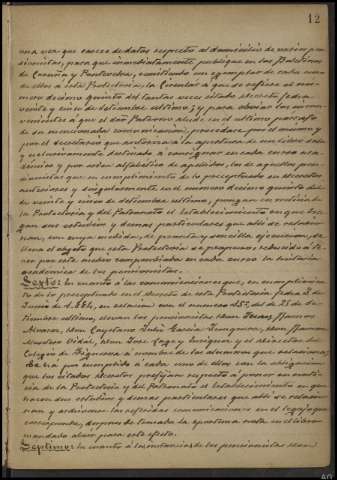 12
una vez que carece de datos respecto al domicilio de varios pen-
sionistas, para que inmediatamente publique en los Boletines
de Coruña y Pontevedra, remitiendo un ejemplar de cada uno
de ellos a esta Protectoria, la Circular a que se refiere el nú-
mero décimo quinto del tantas veces citado decreto fecha
veinte y cinco de Setiembre último; y para obviar los incon-
venientes a que el Sor Patrono alude en el último párrafo
de su mencionada comunicación, procédase por el mismo y
por el Secretario que autorizará la apertura de un libro
y exclusivamente destinado a consignar en cada
y por orden alfabético de apellidos, los de aquellos pen-
sionistas que en cumplimiento de lo preceptuado en decretos
anteriores y singularmente en el número décimo quinto del de
veinte y cinco de Setiembre último, pongan en noticia de
la Protectoria y del Patronato el Establecimiento en que ha-
gan sus estudios y demás particulares que allí se relacio-
nan, con cuya medida, de pronta y sencilla ejecución, se
llena el objeto que esta Protectoria se propone, reducido a te-
ner por este medio compendiada en cada curso la historia
académica de los pensionistas.
Sexto: En cuanto a las comunicaciones que, en cumplimien-
to de lo preceptuado en el decreto de esta Protectoria fecha 2 de
Junio de 1.886, en relación al número 15º, del de 25 de Se-
tiembre último, elevan los pensionistas Don Ramón
Alvarez, Don Cayetano Julio García Don Ramón
Vidal, Don José y el Director del
Colegio de Figueroa a nombre de los alumnos que relaciona;
Se ha por cumplida a cada uno de ellos con la obligación
que los citados decretos prefijan respecto a poner en noti-
cia de la Protectoria y del Patronato el Establecimiento en que
hacen sus estudios y demás particulares que allí se relacio-
nan y archívense las referidas comunicaciones en el legajo que
corresponda, después de tomada la oportuna nota en el libro
mandado abrir para este efecto.
Séptimo: En cuanto a las instancias de los pensionistas Don